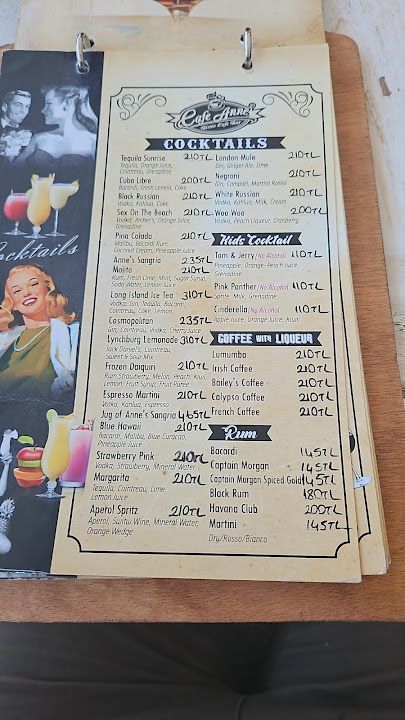 Cafe Anne
COCKTAILS
Cocktails
Tequila Sunrise 210TL
Tequila, Orange Juice,
Cointreau, Grenadine
Cuba Libre 200TL
Bacardi, Fresh Lemon, Coke
Black Russian 210TL
Vodka, Kahlua, Coke
Sex On The Beach 210TL
Vodka, Archers, Orange Juice,
Grenadine
Pina Colada 210TL
Malibu, Bacardi, Rum,
Coconut Cream, Pineapple Juice
Anne's Sangria 235TL
Mojito 210TL
Rum, Fresh Lime, Mint, Sugar Syrup,
Soda Water, Lemon Juice
Long Island Ice Tea 310TL
Vodka, Gin, Tequila, Bacardi,
Cointreau, Coke, Lemon
Cosmopolitan 235TL
Gin, Cointreau, Vodka, Cherry Juice
Lynchburg Lemonade 310TL
Jack Daniel's, Cointreau,
Sweet & Sour Mix
Frozen Daiquiri 210TL
Rum Strawberry, Melon, Peach, Kiwi,
Lemon, Fruit Syrup, Fruit Puree
Espresso Martini 210TL
Vodka, Kahlua, Espresso
Jug of Anne's Sangria 465TL
Blue Hawaii 210TL
Bacardi, Malibu, Blue Curacao,
Pineapple Juice
Strawberry Pink 210TL
Vodka, Strawberry, Mineral Water
Margarita 210TL
Tequila, Cointreau, Lime
Lemon Juice
Aperol Spritz 210TL
Aperol, White Wine, Mineral Water,
Orange Wedge
London Mule 210TL
Gin, Ginger Ale, Lime
Negroni 210TL
Gin, Campari, Martini Rosso
White Russian 210TL
Vodka, Kahlua, Milk, Cream
Woo Woo 200TL
Vodka, Peach Liqueur, Cranberry
Kids Cocktail
Tom & Jerry No Alcohol 110TL
Pineapple, Orange, Peach Juice,
Grenadine
Pink Panther No Alcohol 110TL
Sprite, Milk, Grenadine
Cinderella No Alcohol 110TL
Apple Juice, Orange Juice, Kiwi
COFFEE WITH LIQUEUR
Lumumba 210TL
Irish Coffee 210TL
Bailey's Coffee 210TL
Calypso Coffee 210TL
French Coffee 210TL
Rum
Bacardi 145TL
Captain Morgan 145TL
Captain Morgan Spiced Gold 145TL
Black Rum 180TL
Havana Club 200TL
Martini 145TL
Dry/Rosso/Bianco